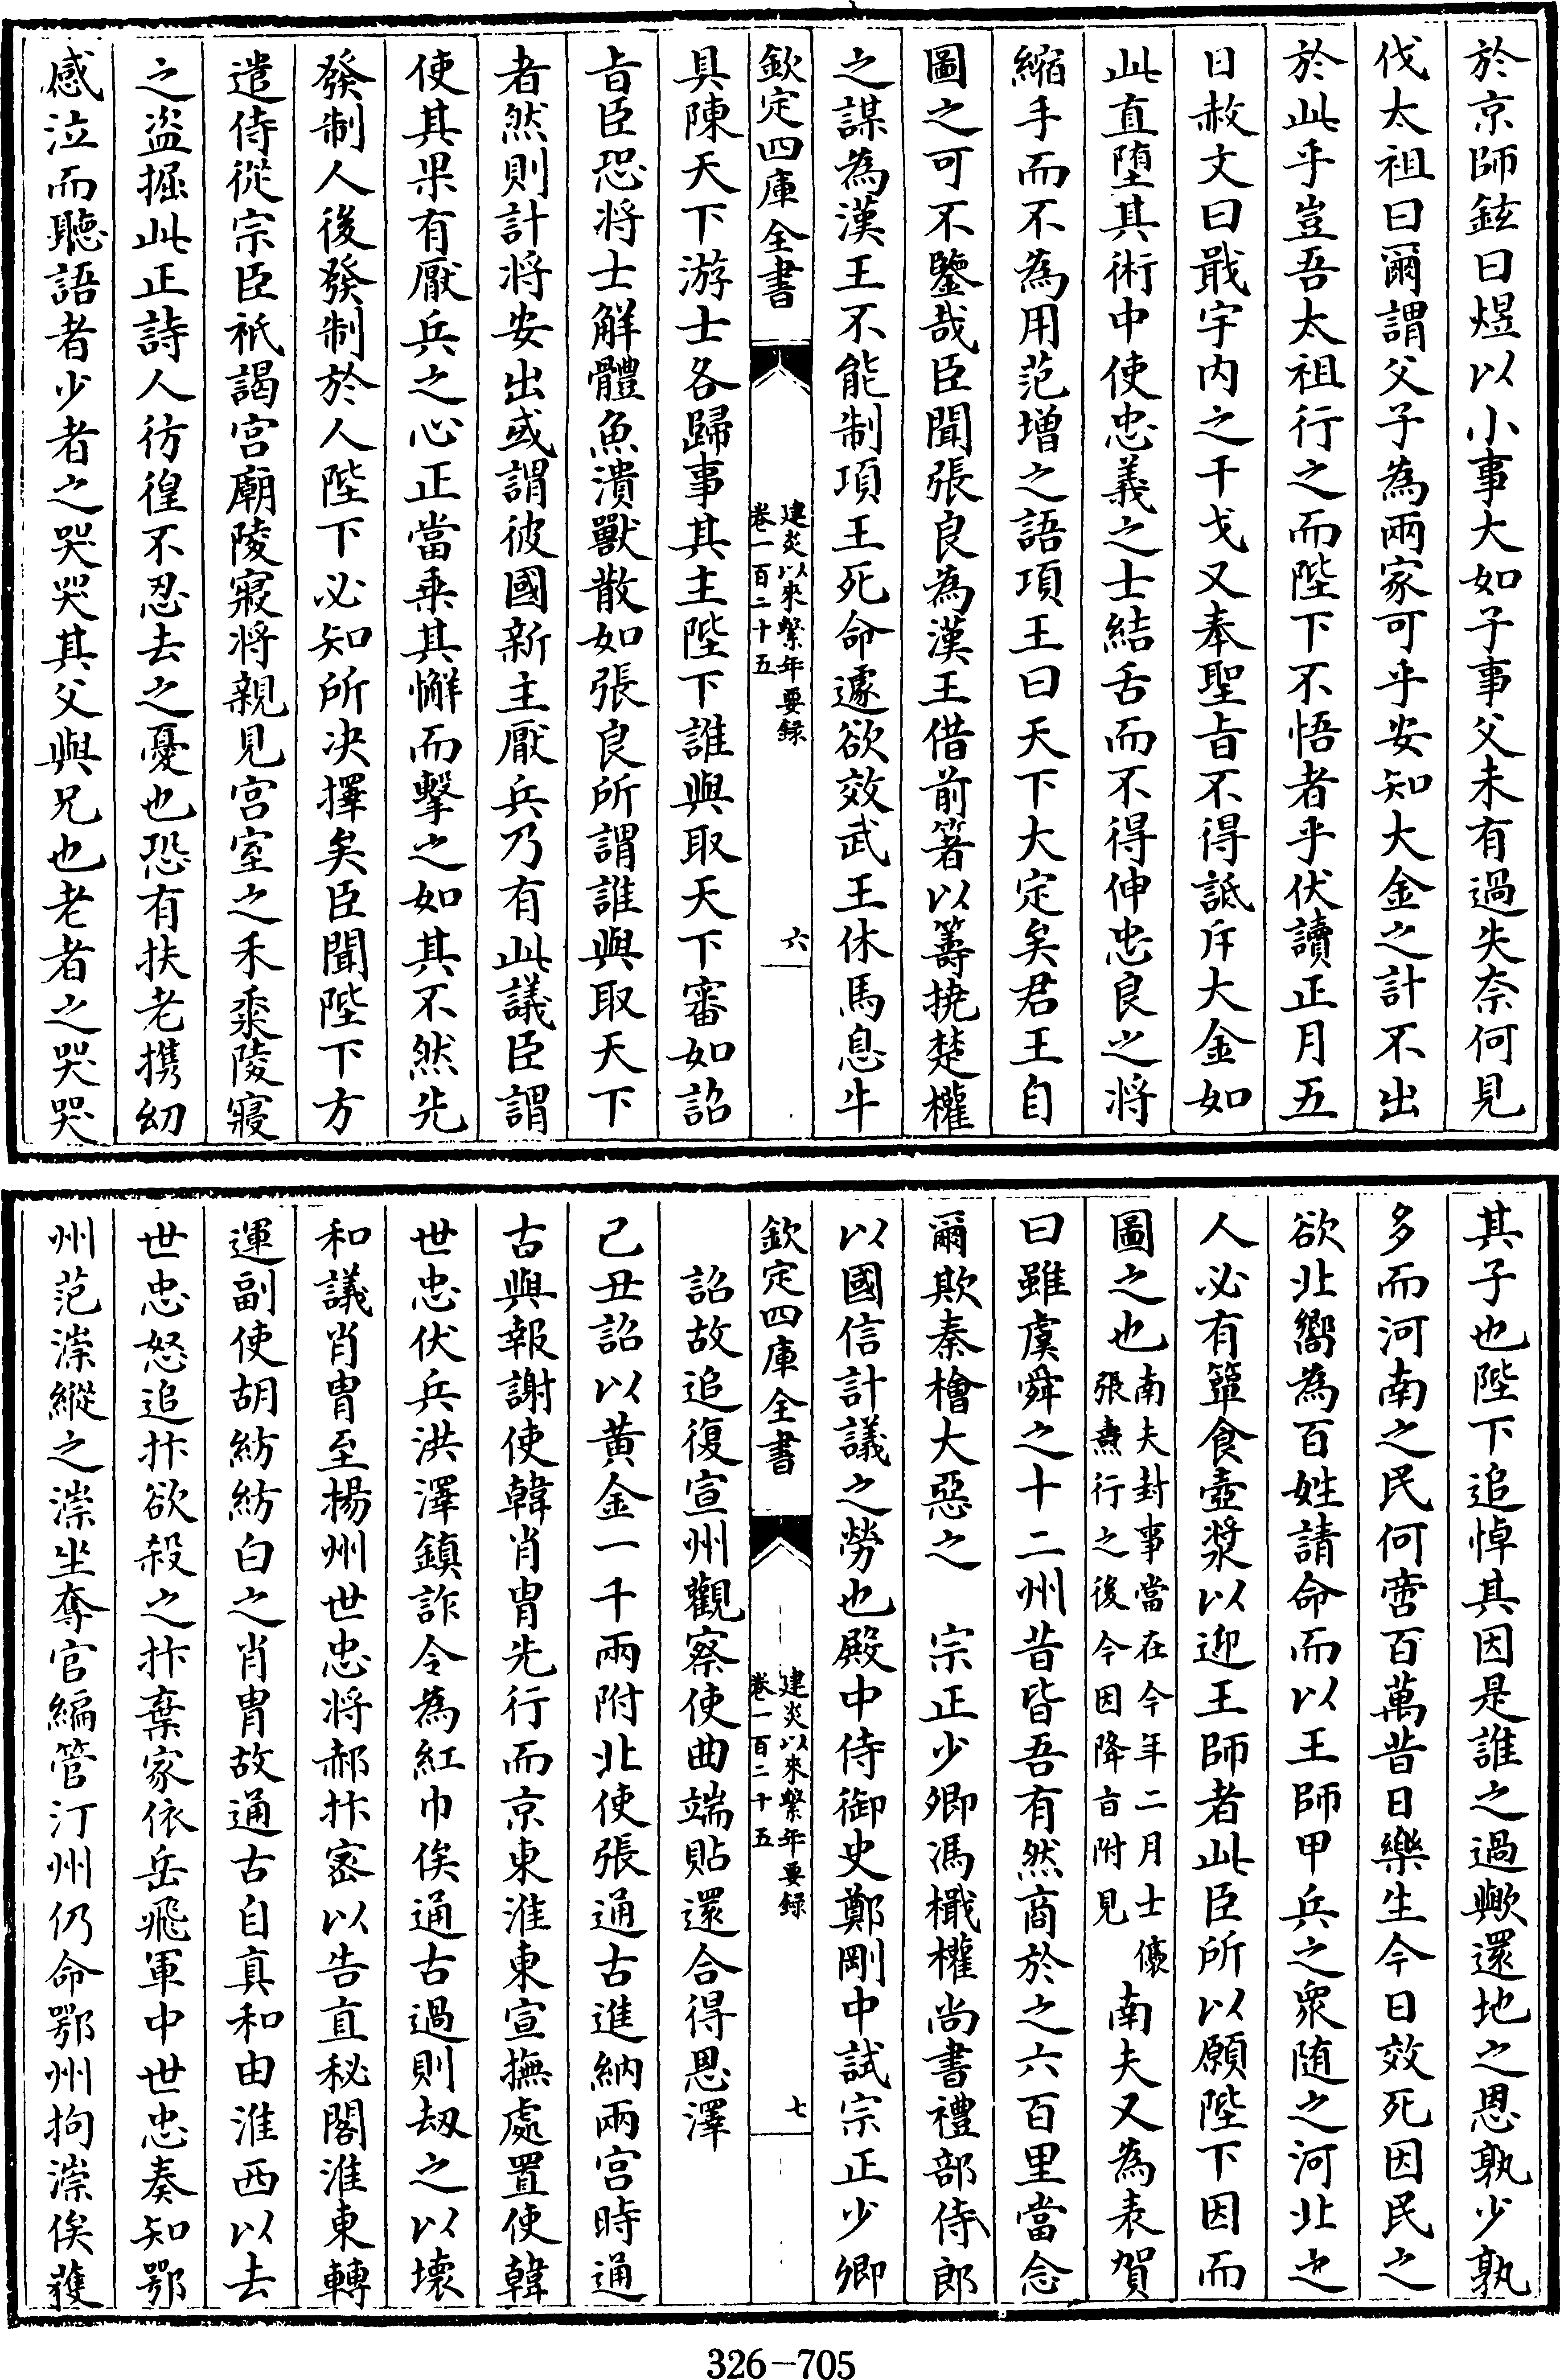 於京師鉉曰煜以小事大如子事父未有過失奈何見
伐太祖曰爾謂父子為兩家可乎安知大金之計不出
於此乎豈吾太祖行之而陛下不悟者乎伏讀正月五
日赦文曰戢宇内之干戈又奉聖㫖不得詆斥大金如
此直堕其術中使忠義之士結舌而不得伸忠良之將
縮手而不為用范增之語項王曰天下大定矣君王自
圖之可不鑒哉臣聞張良為漢王借前箸以籌撓楚權
之謀為漢王不能制項王死命遽欲效武王休馬息牛
欽定四庫全書
建炎以來繫年要録
卷一百二十五
六
具陳天下游士各歸事其主陛下誰與取天下審如詔
㫖臣恐将士解體魚潰獸散如張良所謂誰與取天下
者然則計将安出或謂彼國新主厭兵乃有此議臣謂
使其果有厭兵之心正當乘其懈而擊之如其不然先
發制人後發制於人陛下必知所决擇矣臣聞陛下方
遣侍從宗臣祇謁宫廟陵寢将親見宫室之禾黍陵寢
之盗掘此正詩人彷徨不忍去之憂也恐有扶老携幼
感泣而聽語者少者之哭哭其父與兄也老者之哭哭
其子也陛下追悼其因是誰之過歟還地之恩孰少孰
多而河南之民何啻百萬昔日樂生今日效死因民之
欲北嚮為百姓請命而以王師甲兵之衆随之河北之
人必有簞食壺漿以迎王師者此臣所以願陛下因而
圖之也南夫封事當在今年二月士㒟
張燾行之後今因降㫖附見南夫又為表賀
曰雖虞舜之十二州昔皆吾有然商於之六百里當念
爾欺秦檜大惡之　宗正少卿馮檝權尚書禮部侍郎
以國信計議之勞也殿中侍御史鄭剛中試宗正少卿
欽定四庫全書
建炎以來繫年要録
卷一百二十五
七
詔故追復宣州觀察使曲端貼還合得恩澤
己丑詔以黄金一千兩附北使張通古進納兩宫時通
古與報謝使韓肖胄先行而京東淮東宣撫處置使韓
世忠伏兵洪澤鎮詐令為紅巾俟通古過則刼之以壞
和議肖胄至揚州世忠将郝抃密以告直秘閣淮東轉
運副使胡紡紡白之肖胄故通古自真和由淮西以去
世忠怒追抃欲殺之抃棄家依岳飛軍中世忠奏知鄂
州范漴縱之漴坐奪官編管汀州仍命鄂州拘漴俟獲
326-705